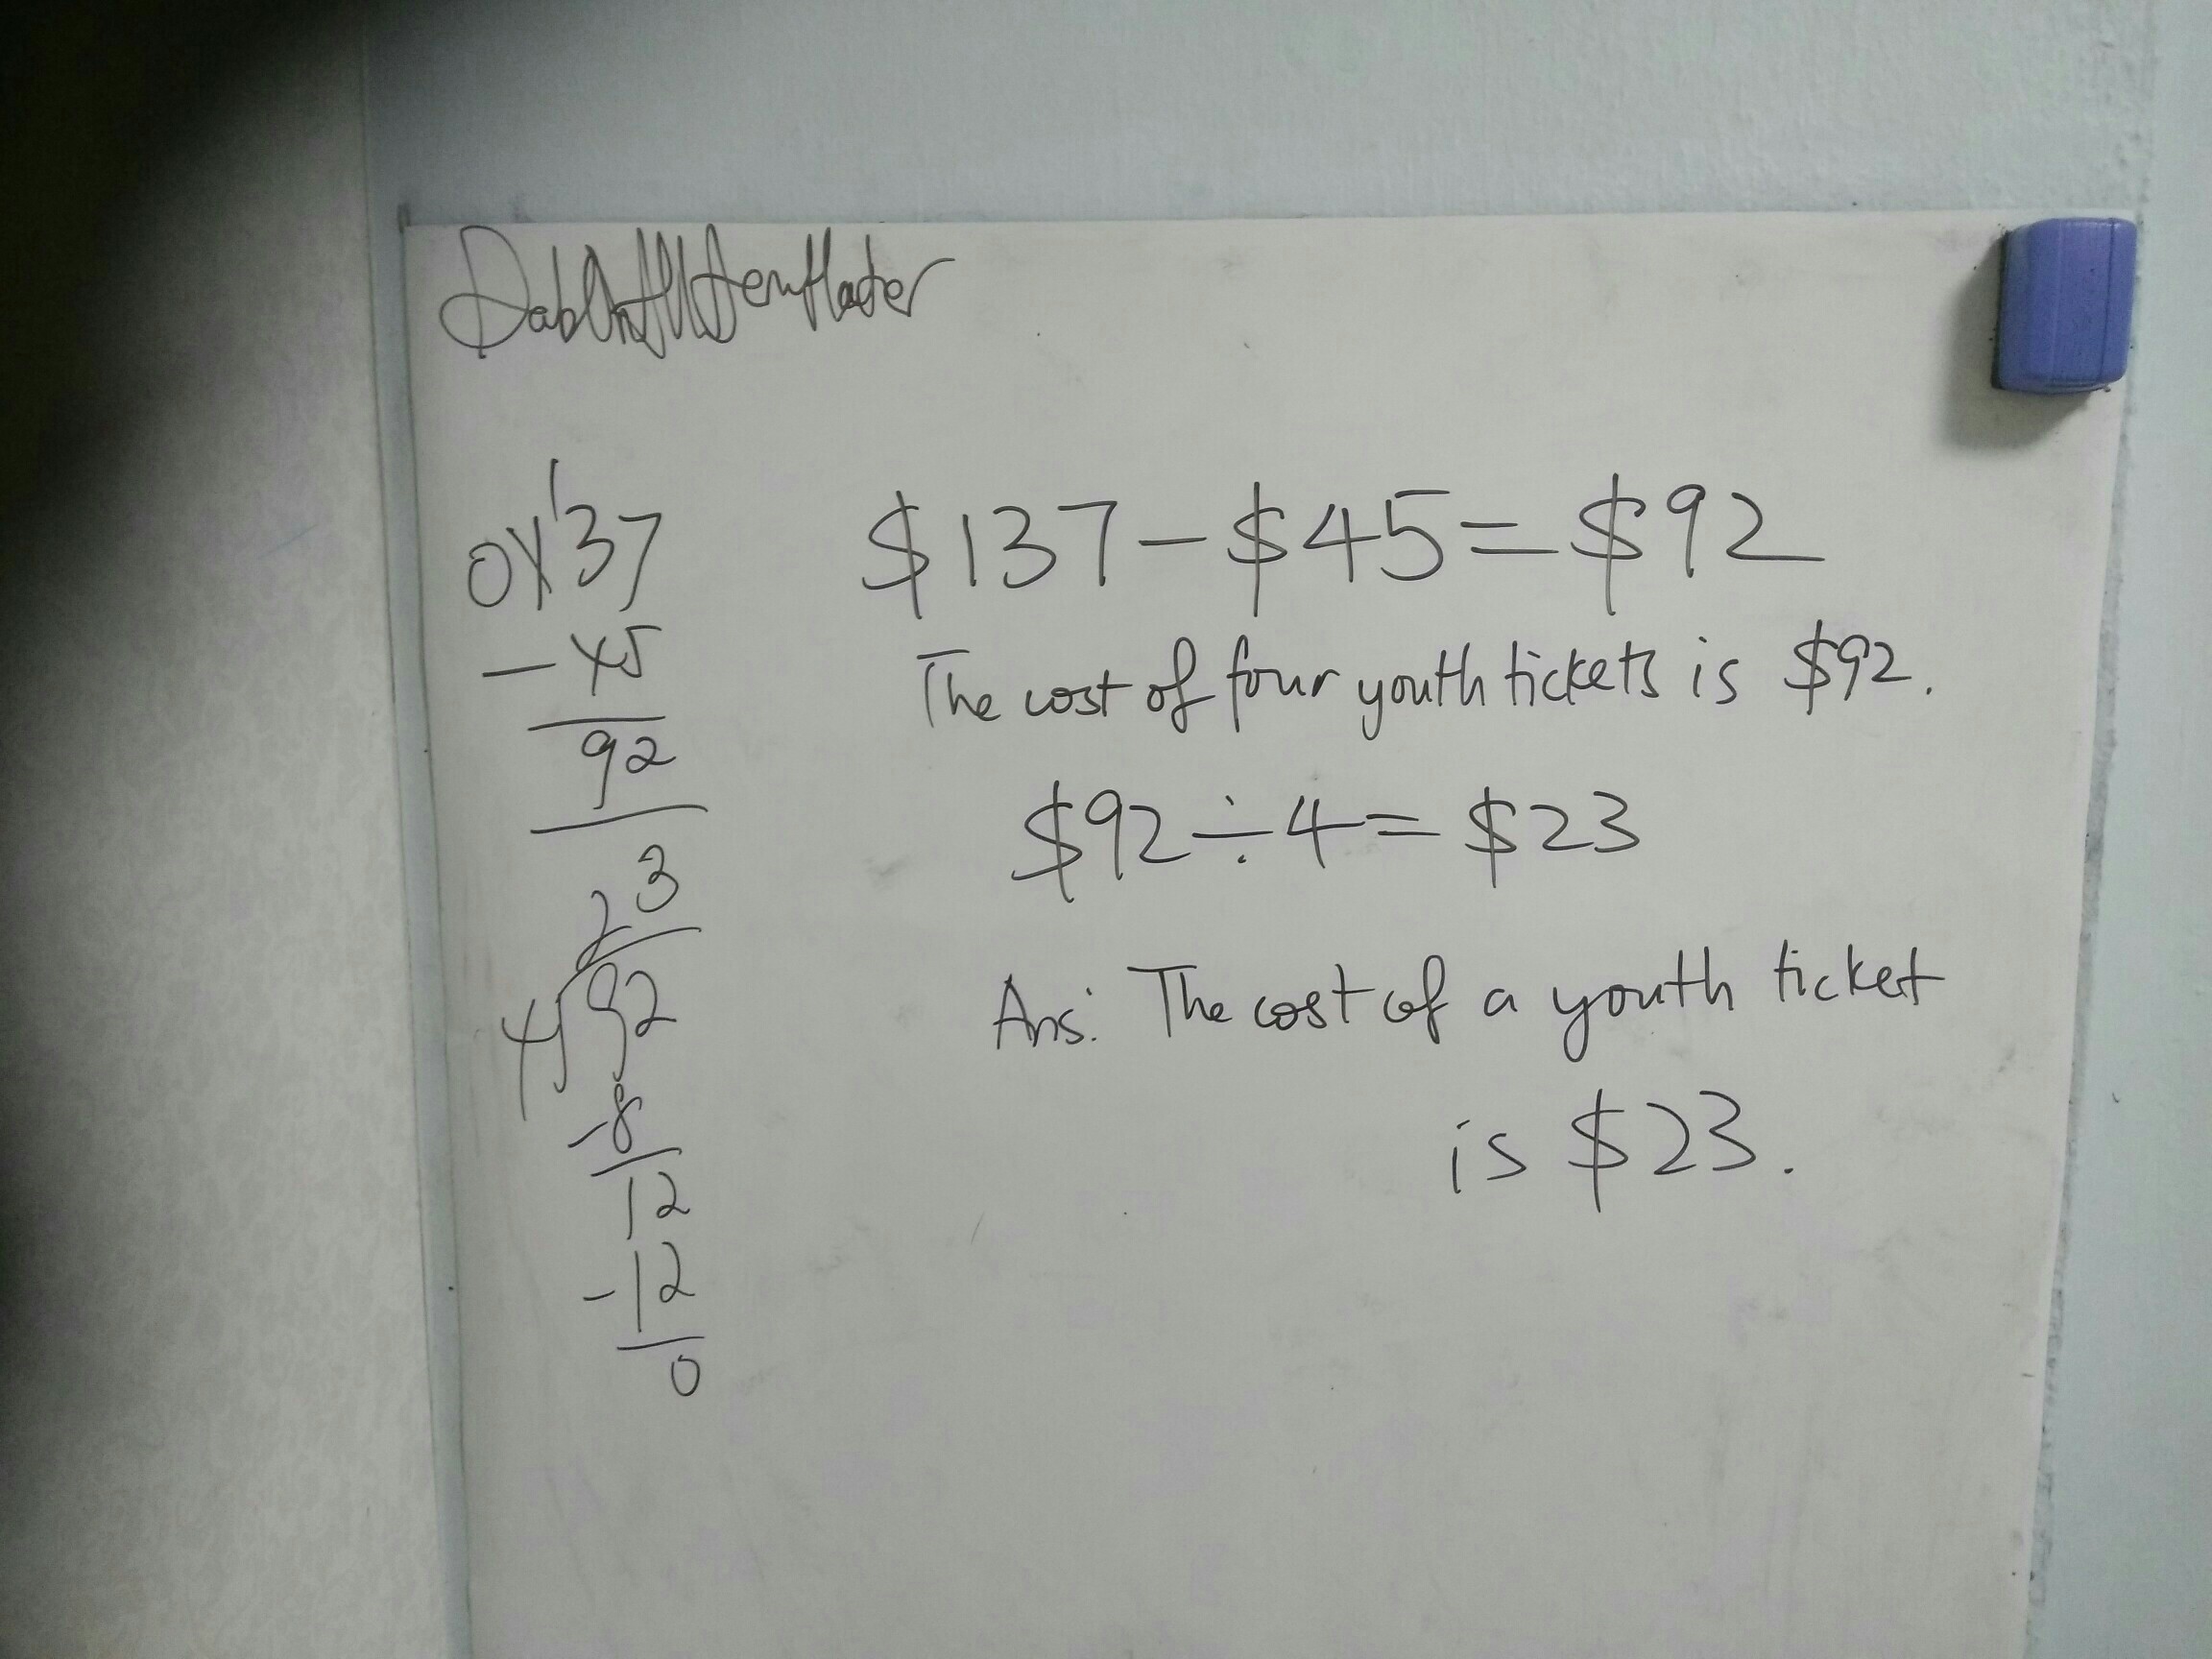 0 1 1 37
- 45
92
23
4 92
-8
12
-12
0
$137-$45=$92
The cost of four youth tickets is $92.
$92÷4=$23
Ans: The cost of a youth ticket
is $23.